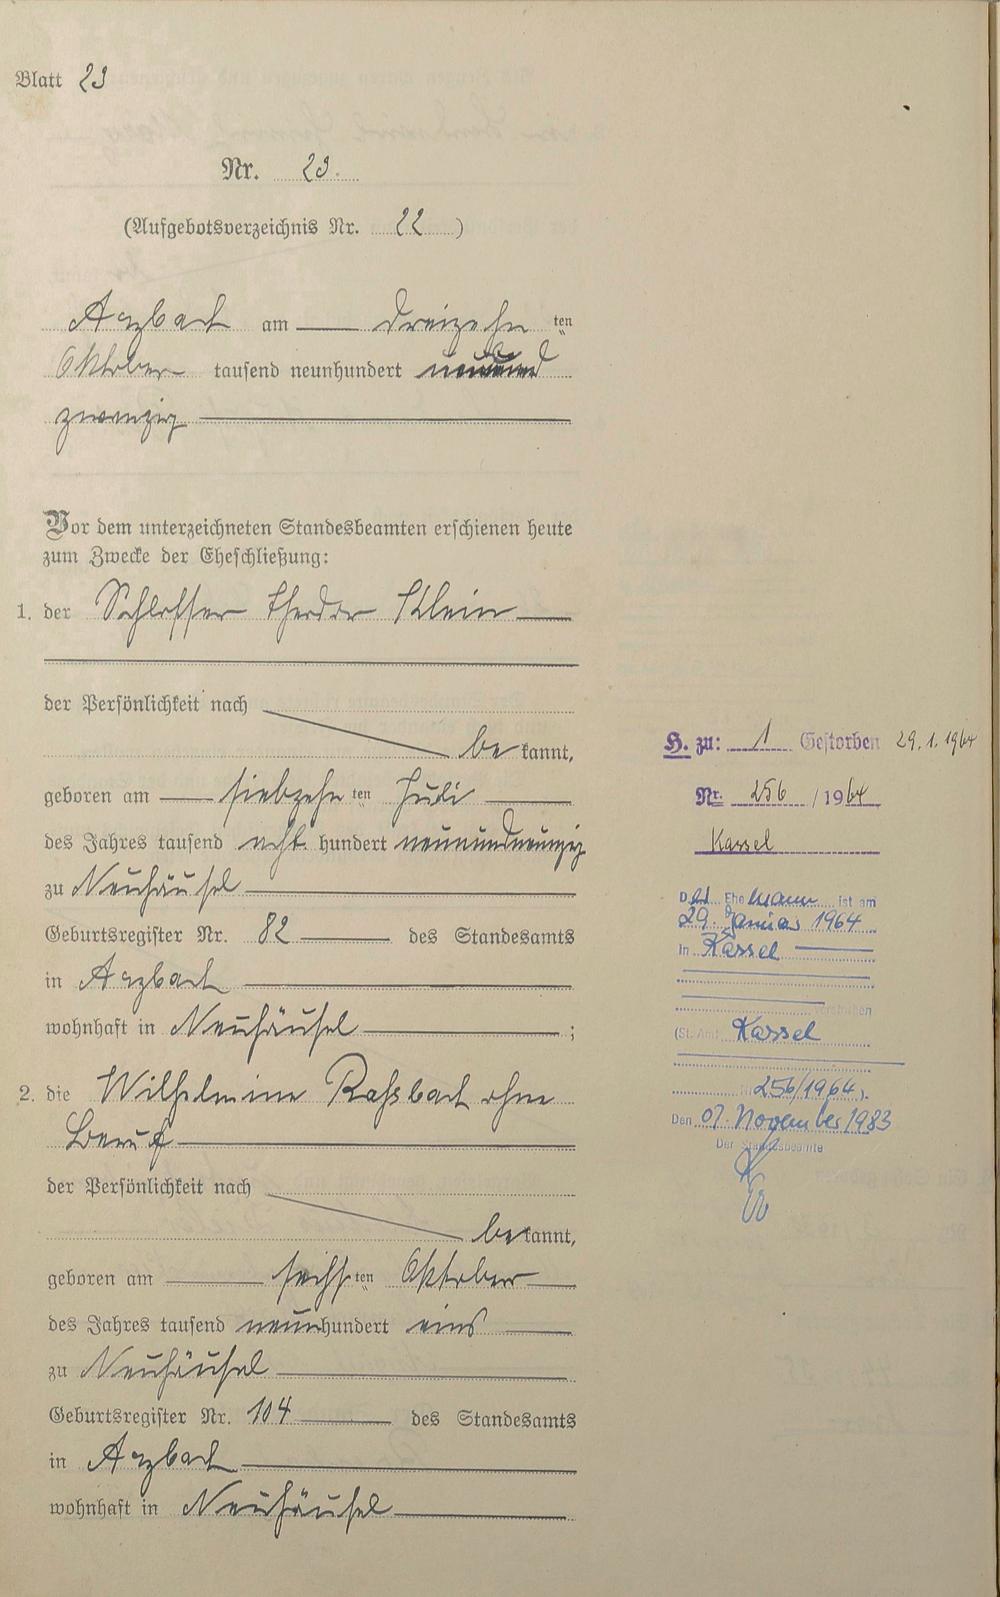 Blatt 23
Nr. 23.
(Aufgebotsverzeichnis Nr. 22)
Arzbach am dreizehnten
Oktober tausend neunhundert
zwanzig
Vor dem unterzeichneten Standesbeamten erschienen heute
zum Zwecke der Eheschließung:
1. der Schlosser Theodor Klein
der Persönlichkeit nach
bekannt,
geboren am siebzehnten Juli
des Jahres tausend achthundert neunundneunzig
zu Neuhäusel
Geburtsregister Nr. 82 des Standesamts
in Arzbach
wohnhaft in Neuhäusel;
2. die Wilhelmine Raßbach ohne
Beruf
der Persönlichkeit nach
bekannt,
geboren am sechsten Oktober
des Jahres tausend neunhundert eins
zu Neuhäusel
Geburtsregister Nr. 104 des Standesamts
in Arzbach
wohnhaft in Neuhäusel
H. zu: 1 Gestorben 29.1.1964
Nr. 256/1964
Kassel
Der Ehemann ist am
29. Januar 1964
in Kassel
verstorben
(St. Amt Kassel
Nr. 256/1964).
Den 07. November 1983
Der Standesbeamte